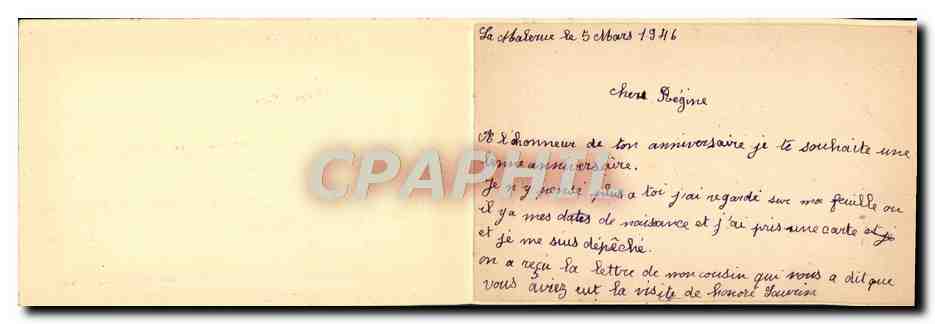 La Malerie le 5 Mars 1946
chere Régine
A l'honneur de ton anniversaire je te souhaite une
anniversaire.
Je n'y pensé plus a toi j'ai regardé sur ma feuille ou
il y a mes dates de naisance et j'ai pris une carte et je
et je me suis dépêché.
on a reçu la lettre de mon cousin qui nous a dit que
vous aviez eut la visite de honoré
CPAPHIL